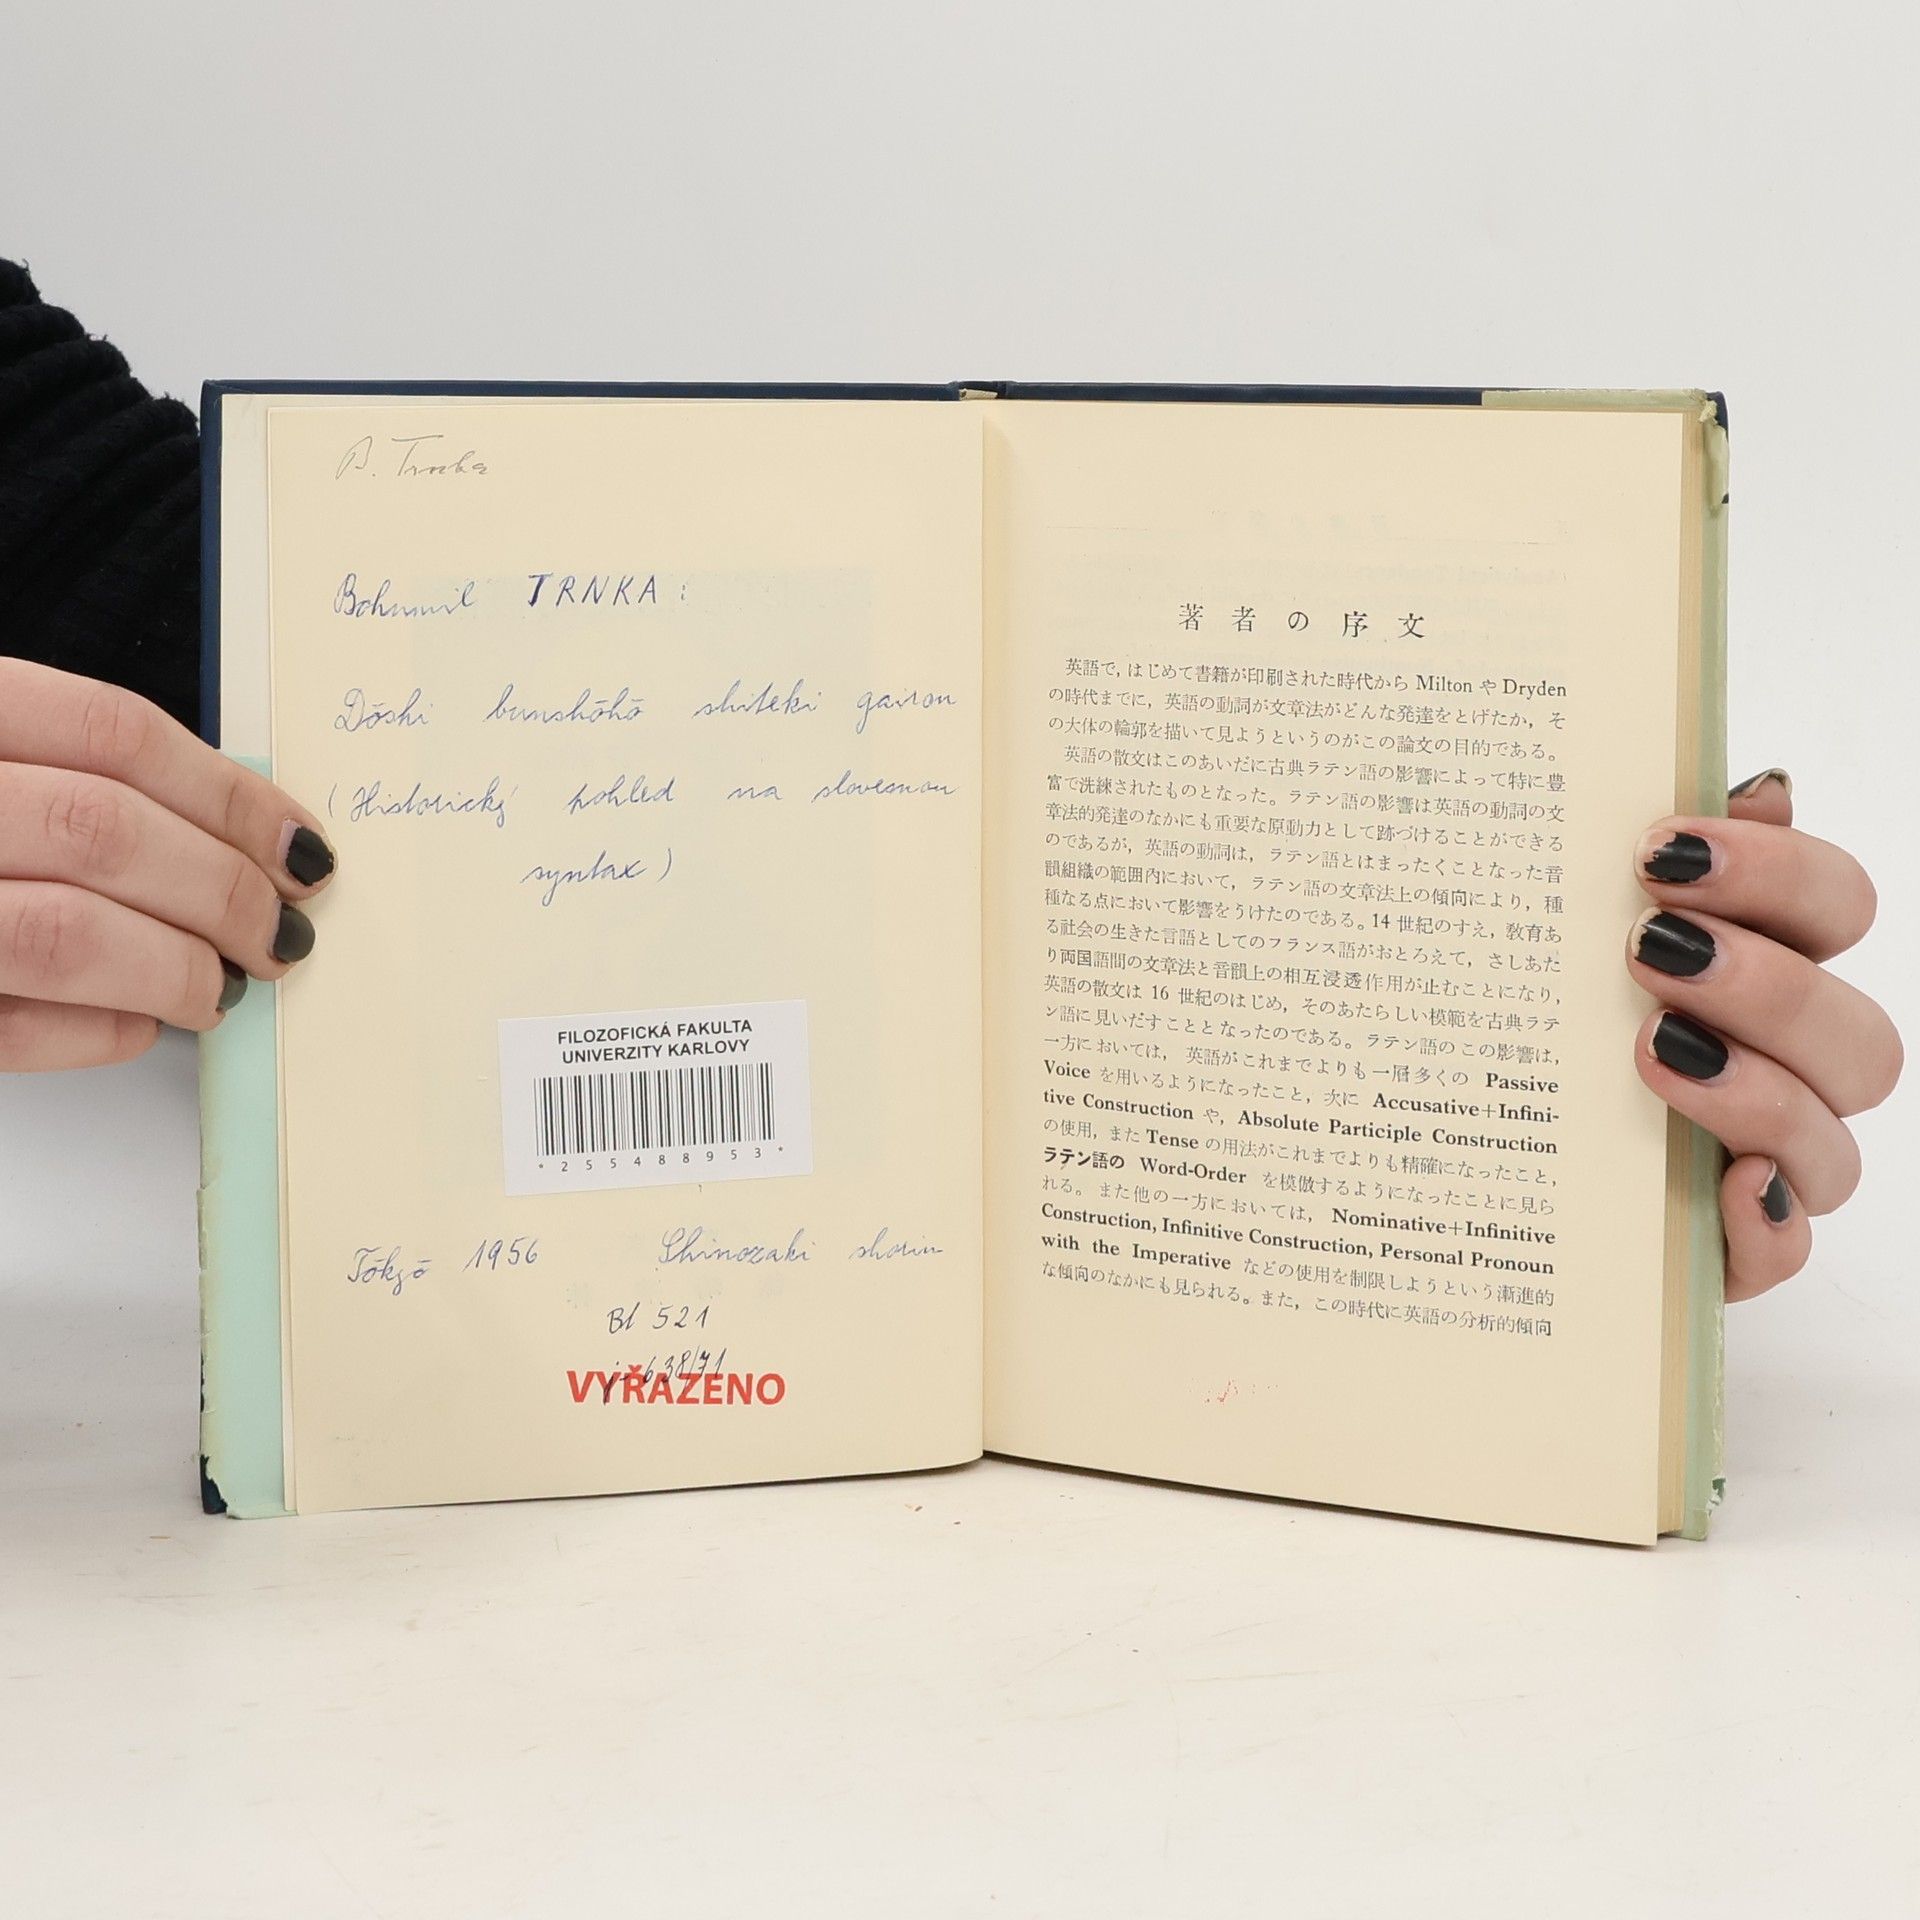 B. Trnka
Bohumil TRNKA:
Dōshi bunshōhō shiteki gairon
(Historický pohled na slovesnou
syntax)
FILOZOFICKÁ FAKULTA
UNIVERZITY KARLOVY
*255488953*
Tōkyō 1956 Shinozaki shorin
Bl 521
j-638/71
VYŘAZENO
著者の序文
英語で，はじめて書籍が印刷された時代から Milton や Dryden
の時代までに，英語の動詞が文章法がどんな発達をとげたか，そ
の大体の輪郭を描いて見ようというのがこの論文の目的である。
英語の散文はこのあいだに古典ラテン語の影響によって特に豊
富で洗練されたものとなった。ラテン語の影響は英語の動詞の文
章法的発達のなかにも重要な原動力として跡づけることができる
のであるが，英語の動詞は，ラテン語とはまったくことなった音
韻組織の範囲内において，ラテン語の文章法上の傾向により，種
種なる点において影響をうけたのである。14 世紀のすえ，教育あ
る社会の生きた言語としてのフランス語がおとろえて，さしあた
り両国語間の文章法と音韻上の相互浸透作用が止むことになり，
英語の散文は 16 世紀のはじめ，そのあたらしい模範を古典ラテ
ン語に見いだすこととなったのである。ラテン語のこの影響は，
一方においては，英語がこれまでよりも一層多くの Passive
Voice を用いるようになったこと，次に Accusative+Infini-
tive Construction や，Absolute Participle Construction
の使用，また Tense の用法がこれまでよりも精確になったこと，
ラテン語の Word-Order を模倣するようになったことに見ら
れる。また他の一方においては，Nominative+Infinitive
Construction, Infinitive Construction, Personal Pronoun
with the Imperative などの使用を制限しようという漸進的
な傾向のなかにも見られる。また，この時代に英語の分析的傾向